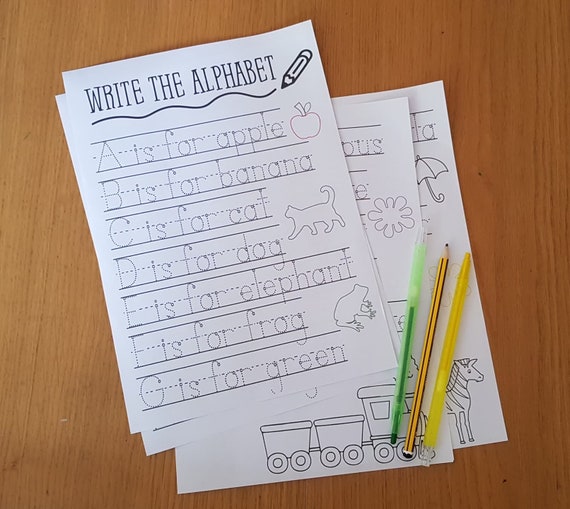 WRITE THE ALPHABET
A is for apple
B is for banana
C is for cat
D is for dog
E is for elephant
F is for frog
G is for green